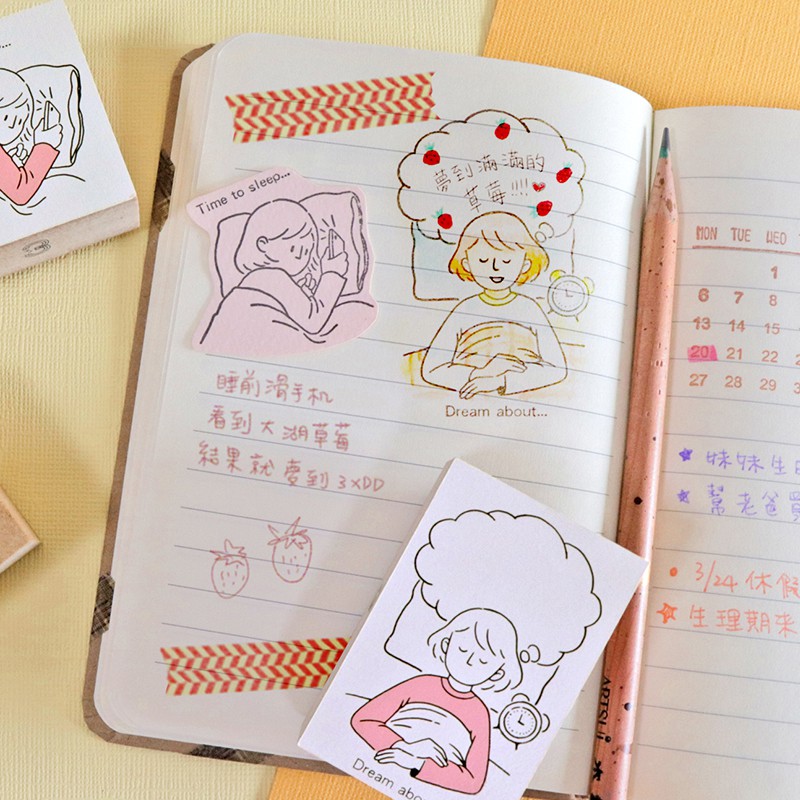 Time to sleep...
夢到滿滿的
草莓!!!
Dream about...
睡前滑手机
看到大湖草莓
結果就夢到了XDD
Dream abo
MON TUE WED
1
6 7 8
13 14 15
20 21 22
27 28 29
妹妹生日
幫老爸買
3/24 休假
生理期來